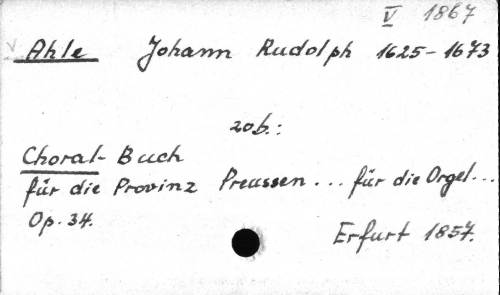 V 1867
v Ahle Johann Rudolph 1625-1673
zob.:
Choral-Buch
für die Provinz Preussen... für die Orgel...
Op. 34.
Erfurt 1857.